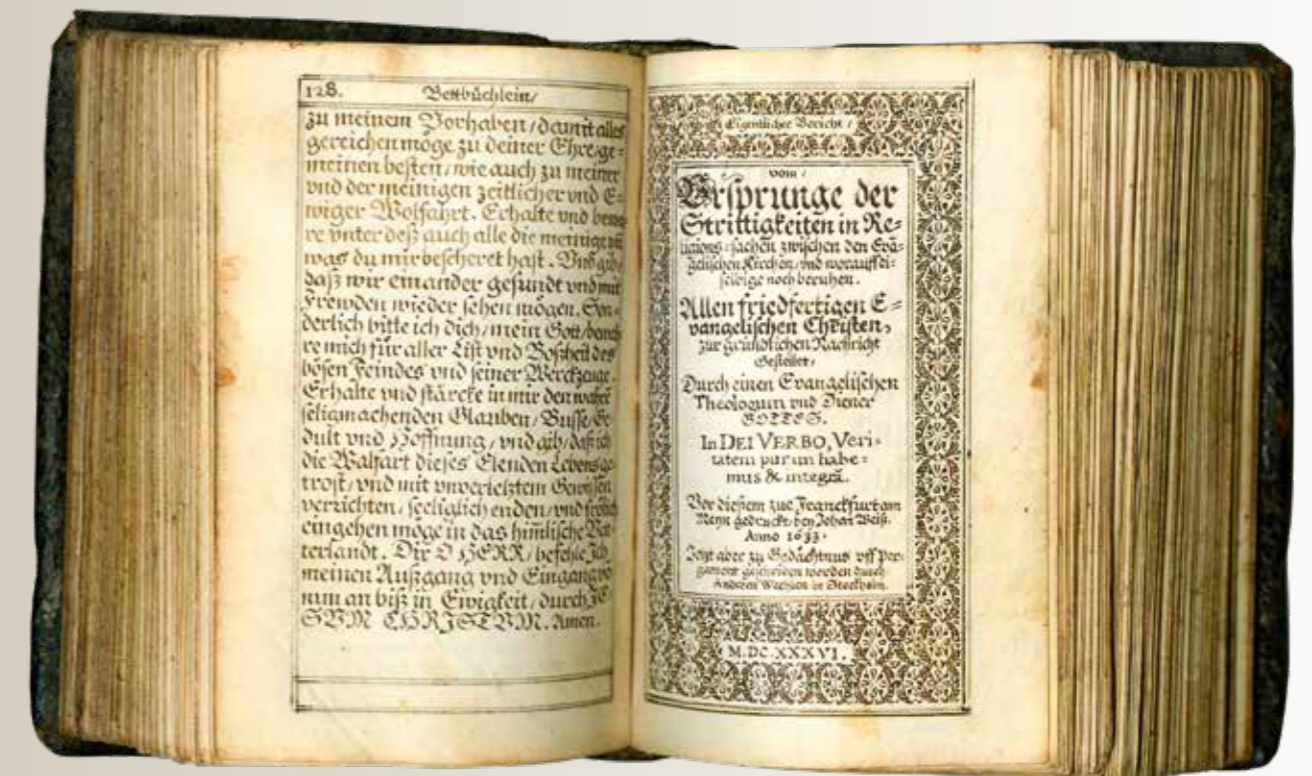 128. Bettbüchlein/
zu meinem Vorhaben/damit alles
gereichen möge zu deiner Ehre/ge=
meinen besten/wie auch zu meiner
vnd der meinigen zeitlicher vnd E=
wiger Wolfahrt. Erhalte vnd bewa
re vnter deß auch alle die meinige
was du mir bescheret hast. Vnd gib/
daß wir einander gesundt vnd mit
Frewden wieder sehen mögen. Son=
derlich bitte ich dich/mein Gott/bewah
re mich für aller List vnd Boßheit des
bösen Feindes vnd seiner Werckzeuge.
Erhalte vnd stärcke in mir den wahrē
seligmachenden Glauben/Busse/Ge
dult vnd Hoffnung/vnd gib/daß ich
die Walfart dieses Elenden Lebens ge
trost/vnd mit vnverletztem Gewissen
verrichten/seeliglich enden/vnd frölich
eingehen möge in das him̄lische Vat
terlandt. Dir O HERR/befehle Ich
meinen Außgang vnd Eingang vō
nun an biß in Ewigkeit/durch JE
SVM CHRISTVM. Amen.
Eigentlicher Bericht/
vom/
Vrsprunge der
Strittigkeiten in Re=
ligions=sachen zwischen den Evā=
gelischen Kirchen/vnd worauff di=
selbige noch beruhen.
Allen friedfertigen E=
vangelischen Christen,
zur gründlichen Nachricht
Gestellet/
Durch einen Evangelischen
Theologum vnd Diener
GOTTES.
In DEI VERBO, Veri=
tatem puram habe=
mus & integrā.
Vor diesem zue Franckfurt am
Meyn gedruckt/bey Johan Weiß.
Anno 1633.
Jetzt aber zu Gedächtnus vff Per=
gament geschrieben worden durch
Andreen in Stockholm.
M.DC.XXXVI.